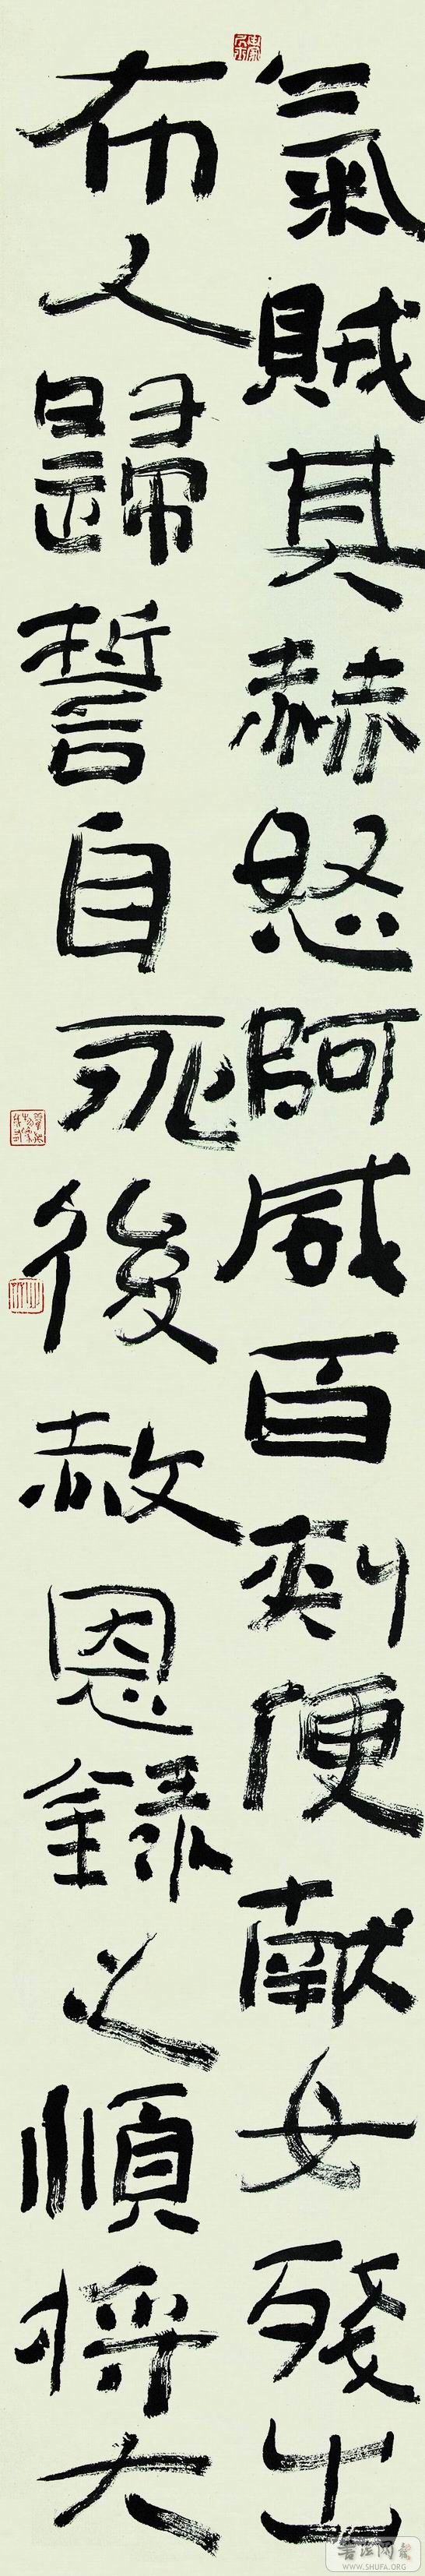 氣賊其赫怒阿威百便献女殘出
布人歸誓自死後赦恩錄之順將大
WWW.SHUFA.ORG